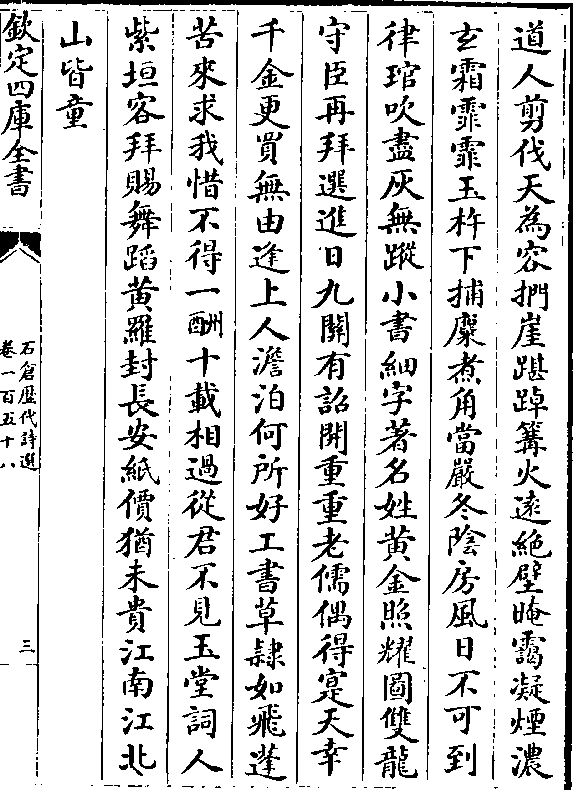 道人剪伐天為容捫崖踸踔篝火遠絶壁晻靄凝煙濃
玄霜霏霏玉杵下捕麋煮角當嚴冬陰房風日不可到
律琯吹盡灰無蹤小書細字著名姓黄金照耀圖雙龍
守臣再拜選進日九關有詔開重重老儒偶得寔天幸
千金更買無由逢上人澹泊何所好工書草隷如飛蓬
苦來求我惜不得一酬十載相過從君不見玉堂詞人
紫垣容拜賜舞蹈黄羅封長安紙價猶未貴江南江北
山皆童
欽定四庫全書
石倉歴代詩選
卷一百五十八
三